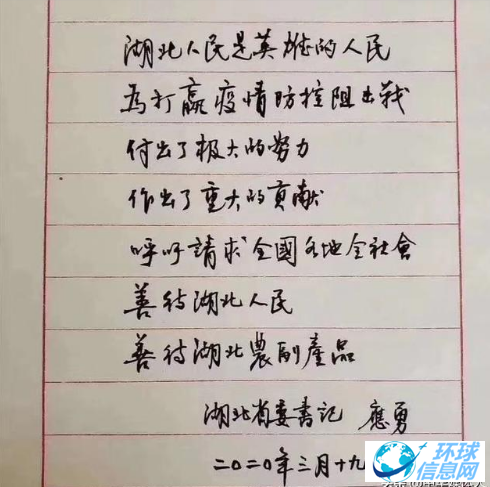 湖北人民是英雄的人民
為打贏疫情防控阻击战
付出了极大的努力
作出了重大的貢献
呼吁請求全國各地全社會
善待湖北人民
善待湖北農副產品
湖北省委書記 應勇
二〇二〇年三月十九
环球
信息网